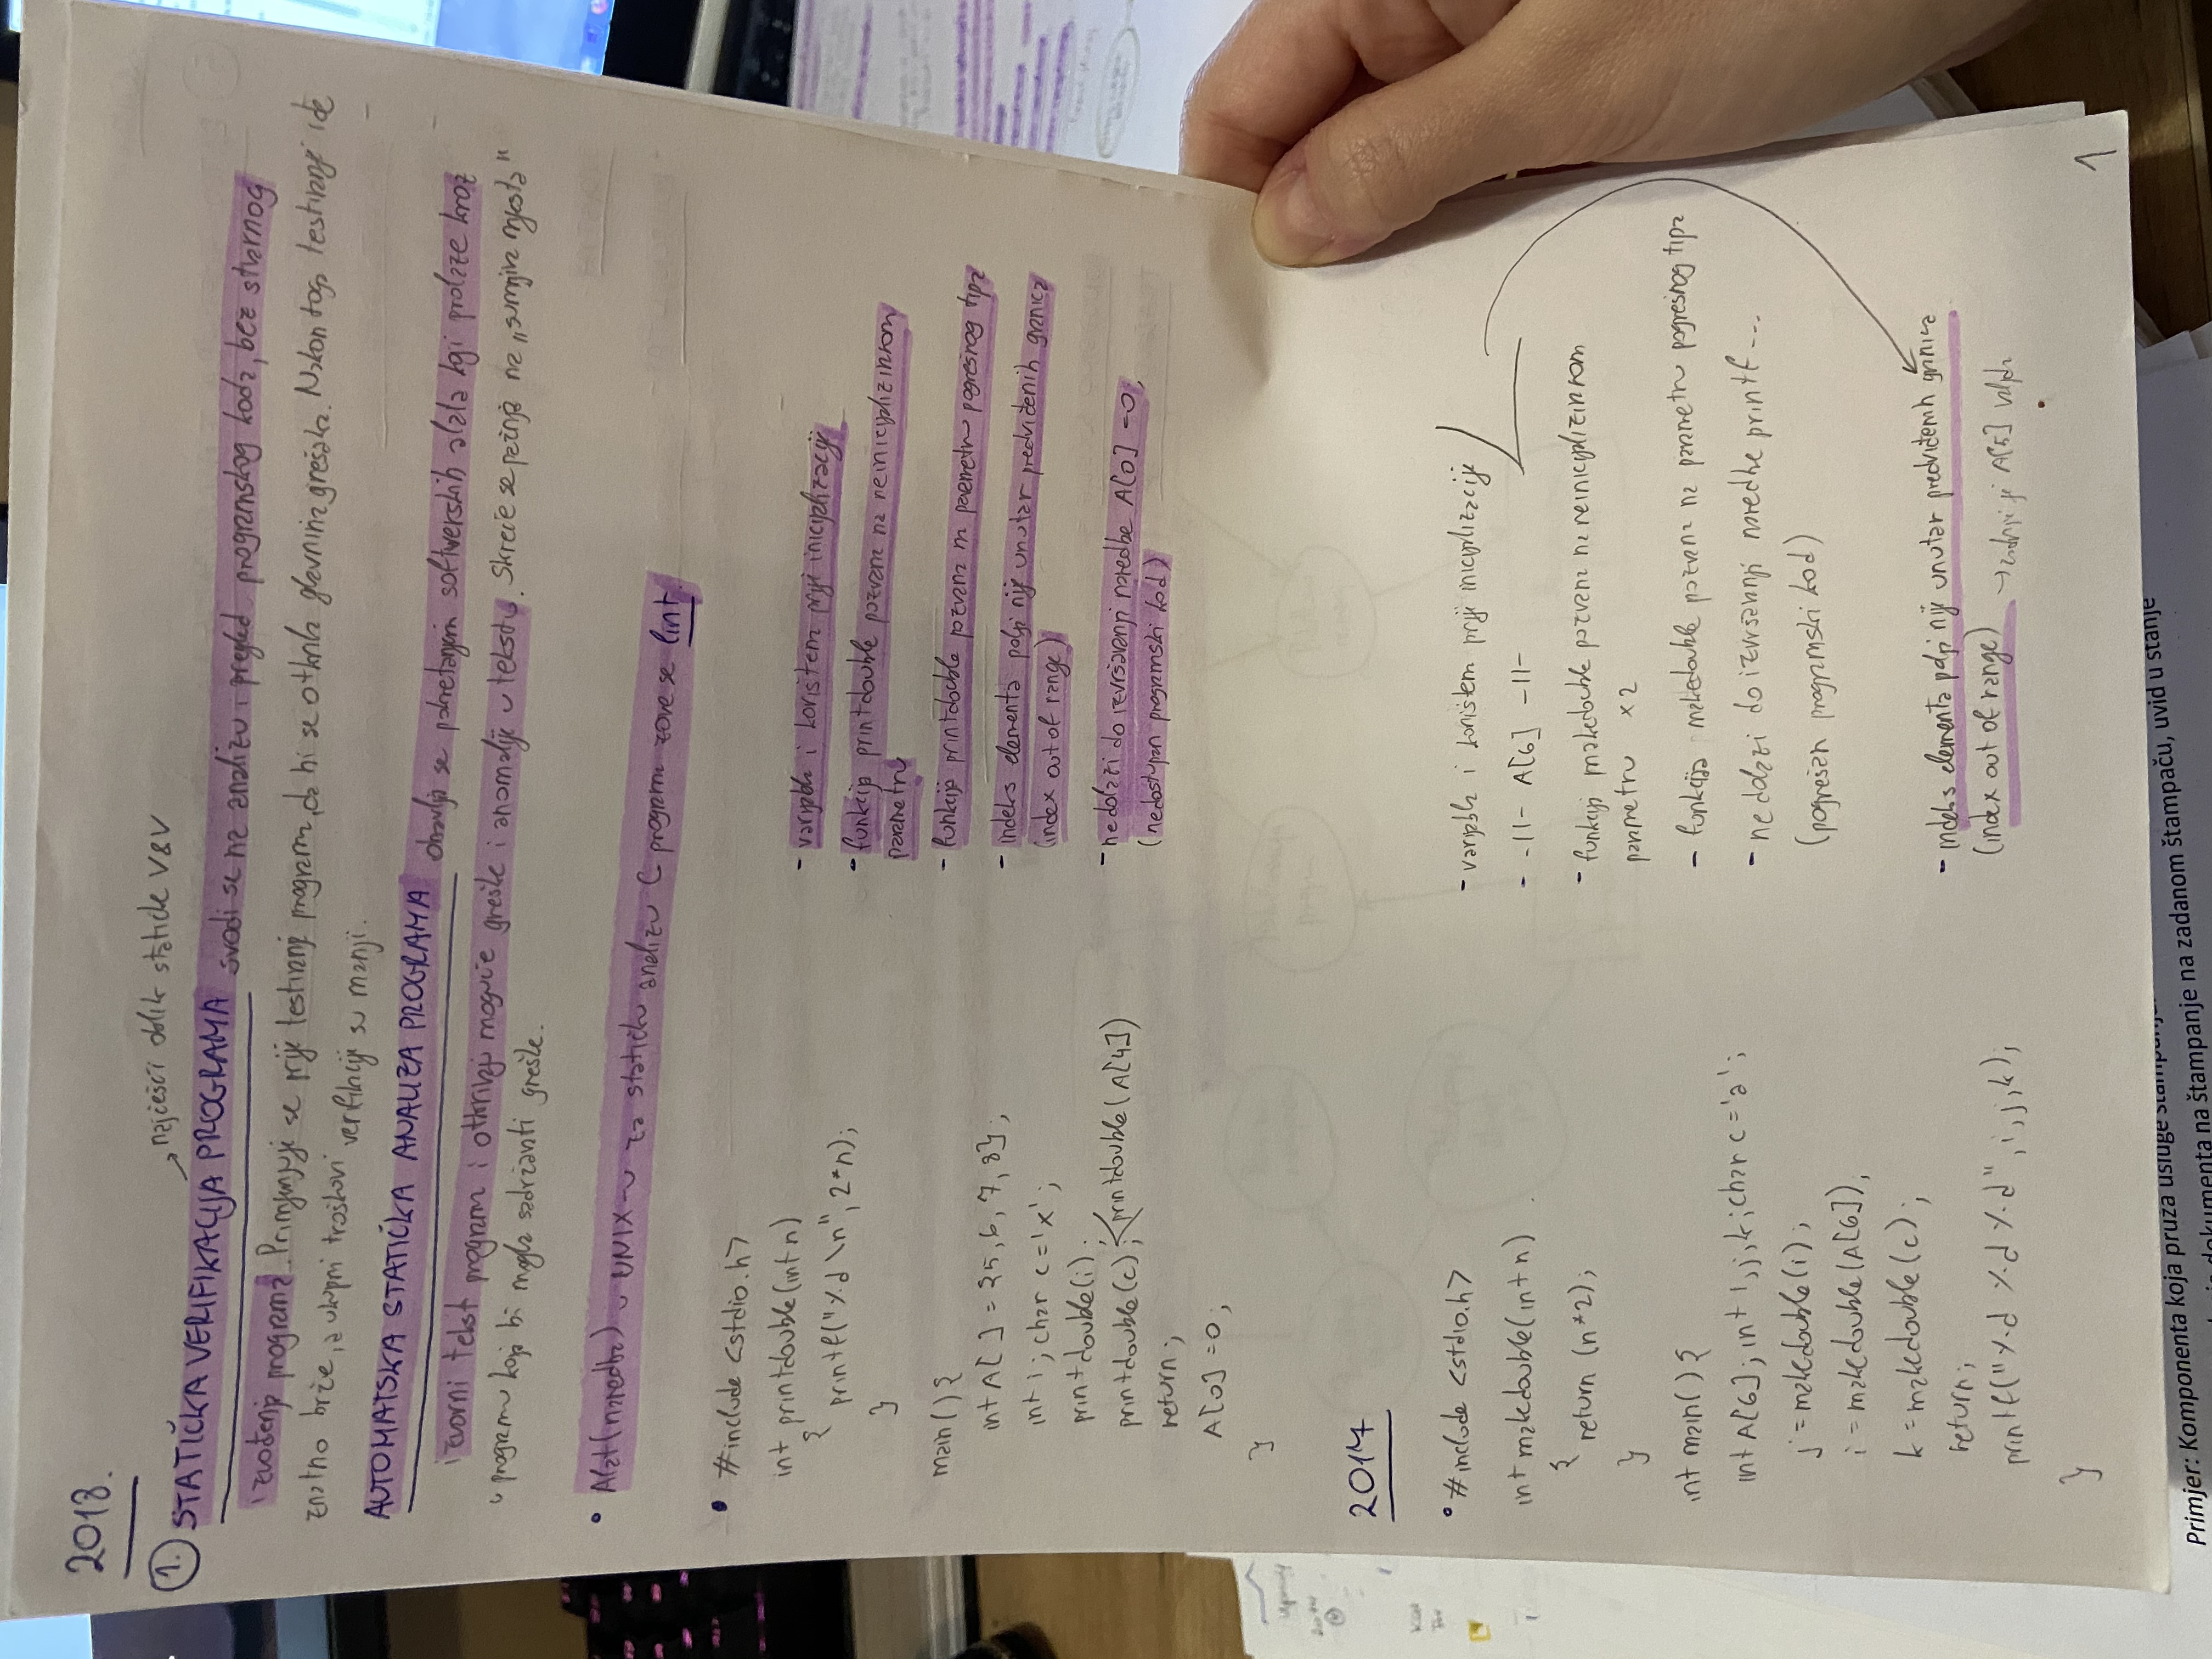 2018.
1. → najčešći oblik statičke V&V
STATIČKA VERIFIKACIJA PROGRAMA svodi se na analizu i pregled programskog koda, bez stvarnog
izvođenja programa. Primjenjuje se prije testiranja programa, da bi se otkrila glavnina grešaka. Nakon toga testiranje ide
znatno brže, a ukupni troškovi verifikacije su manji.
AUTOMATSKA STATIČKA ANALIZA PROGRAMA obavlja se pokretanjem softverskih alata koji prolaze kroz
izvorni tekst programa i otkrivaju moguće greške i anomalije u tekstu. Skreće se pažnja na „sumnjiva mjesta"
u programu koja bi mogla sadržavati greške.
• Alat (naredba) u UNIX-u za statičku analizu C programa zove se lint.
• #include <stdio.h>
int printdouble(int n)
{
printf("%d \n", 2*n);
}
main() {
int A[ ] = {5, 6, 7, 8};
int i; char c='x';
printdouble(i);
printdouble(c); < printdouble(A[4])
return;
A[0] =0;
}
- varijabla i korištena prije inicijalizacije
- funkcija printdouble pozvana na neinicijaliziranom
parametru
- funkcija printdouble pozvana na parametru pogrešnog tipa
- indeks elementa polja nije unutar predviđenih granica
(index out of range)
- ne dolazi do izvršavanja naredbe A[0] =0;
(nedostupan programski kod)
2017
• #include <stdio.h>
int makedouble(int n)
{
return (n*2);
}
int main() {
int A[6]; int i,j,k; char c='a';
j = makedouble(i);
i = makedouble(A[6]);
k = makedouble(c);
return;
printf("%d %d %d", i,j,k);
}
- varijabla i korištena prije inicijalizacije
- -11- A[6] -11-
- funkcija makedouble pozvana na neinicijaliziranom
parametru x2
- funkcija makedouble pozvana na parametru pogrešnog tipa
- ne dolazi do izvršavanja naredbe printf ...
(pogrešan programski kod)
- indeks elementa polja nije unutar predviđenih granica
(index out of range) → zadnji je A[5] valjda
1
Primjer: Komponenta koja pruža usluge
dokumenta na štampanje na zadanom štampaču, uvid u stanje